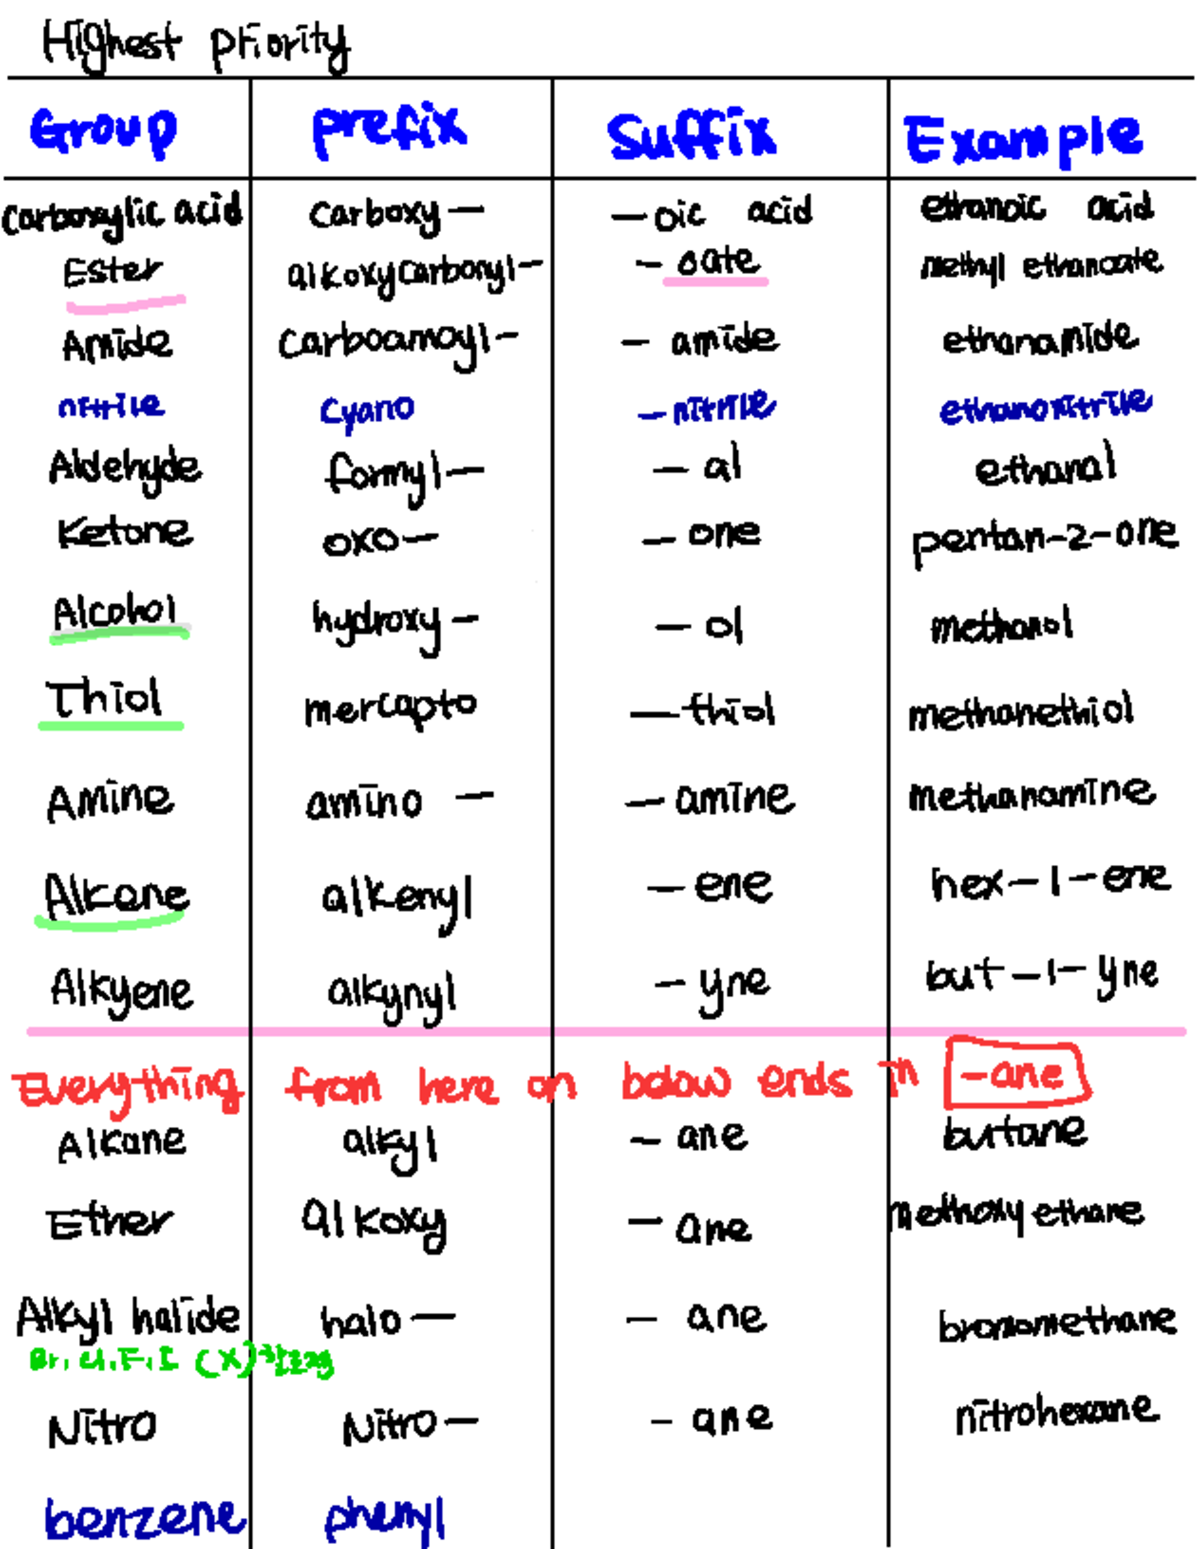 Highest priority
Group prefix Suffix Example
Carboxylic acid Carboxy— —oic acid ethanoic acid
Ester alkoxycarbonyl— —oate methyl ethanoate
Amide Carboamoyl— —amide ethanamide
nitrile Cyano —nitrile ethanonitrile
Aldehyde formyl— —al ethanal
Ketone oxo— —one pentan-2-one
Alcohol hydroxy— —ol methanol
Thiol mercapto —thiol methanethiol
Amine amino — —amine methanamine
Alkene alkenyl —ene hex-1-ene
Alkyene alkynyl —yne but-1-yne
Everything from here on below ends in -ane
Alkane alkyl —ane butane
Ether alkoxy —ane methoxy ethane
Alkyl halide halo— —ane bromomethane
Br. Cl. F. I (X)
Nitro Nitro— —ane nitrohexane
benzene phenyl